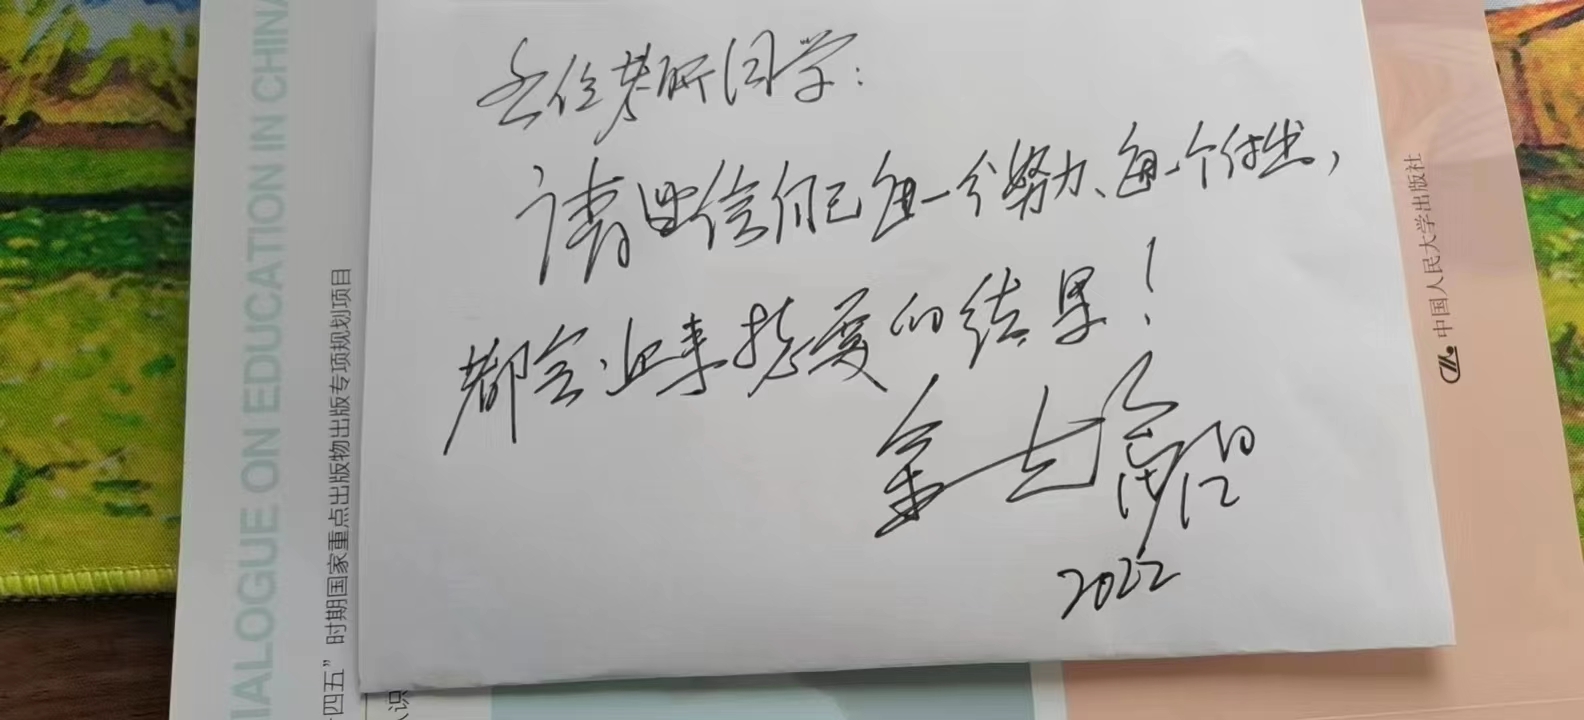 各位考研同学：
请坚信自己每一分努力、每一个付出，
都会迎来想要的结果！
2022
IALOGUE ON EDUCATION IN CHINA
四五”时期国家重点出版物出版专项规划项目
中国人民大学出版社